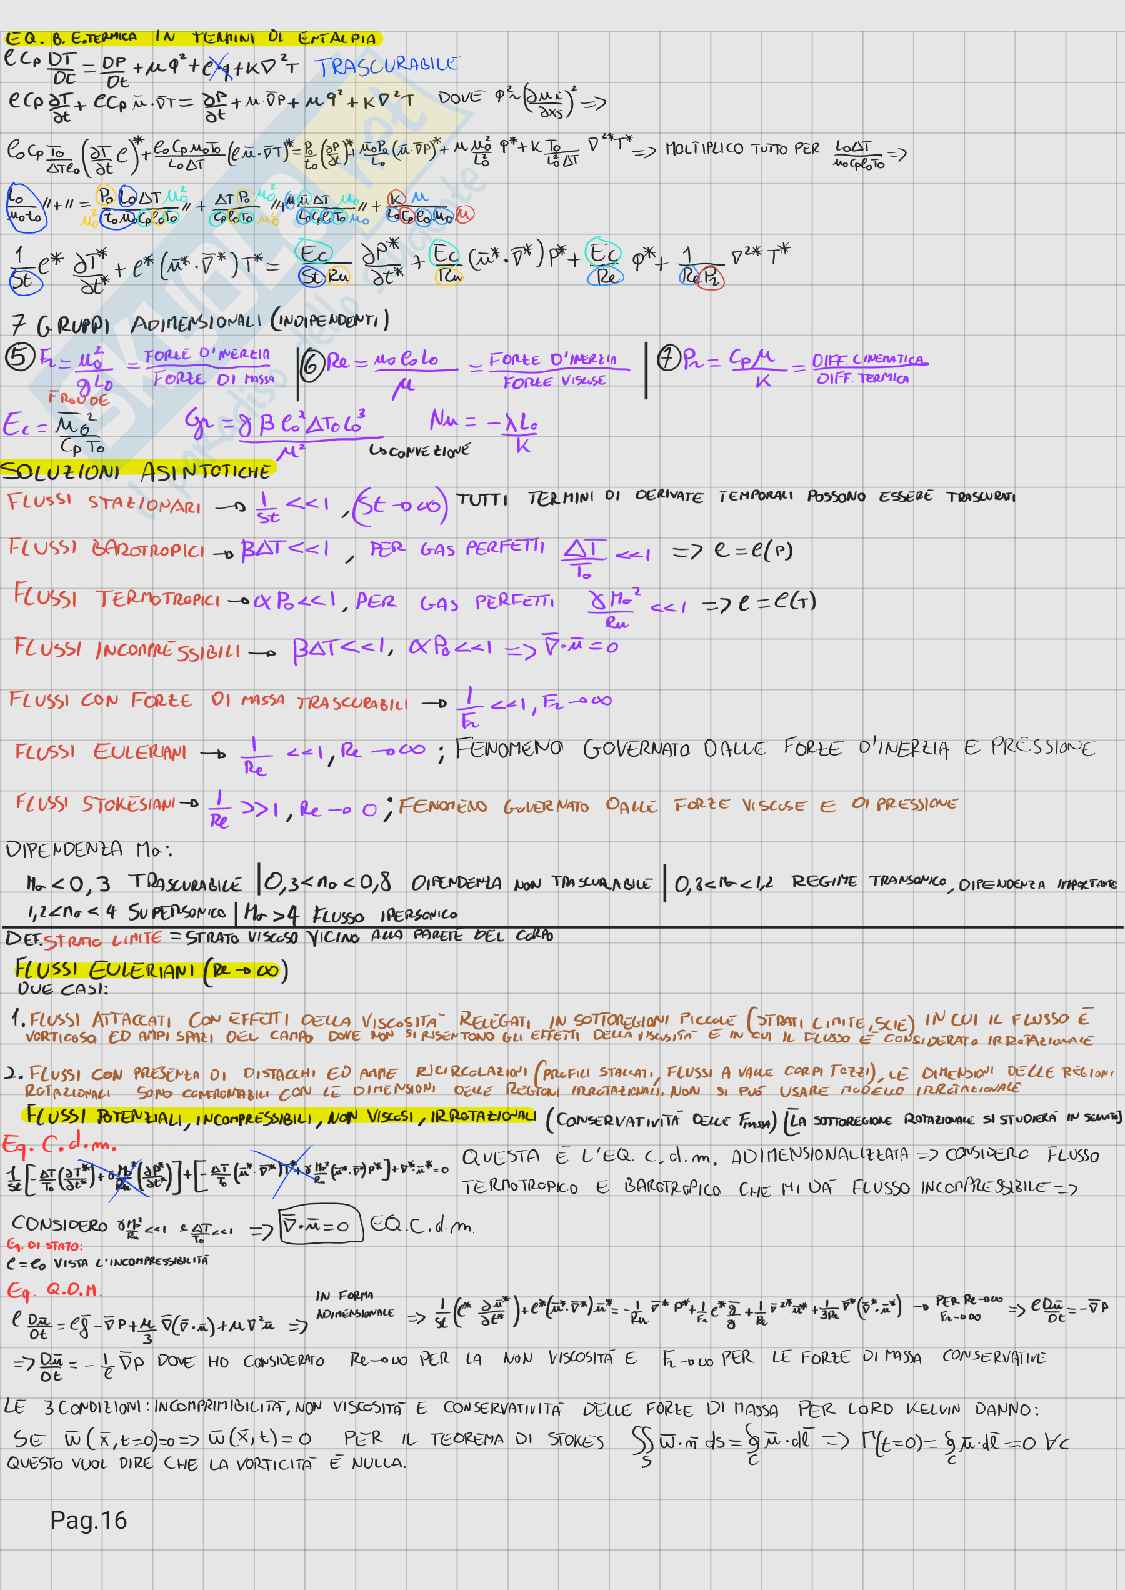 EQ. B. E.TERMICA IN TERMINI DI ENTALPIA
ρCp DT/Dt = DP/Dt + μφ² + ρq + K∇²T TRASCURABILE
ρCp ∂T/∂t + ρCp ū·∇T = ∂P/∂t + u·∇P + μφ² + K∇²T DOVE φ²~(∂ui/∂xj)² =>
=> MOLTIPLICO TUTTO PER L0ΔT/(u0Cpρ0T0) =>
1/St ρ* ∂T*/∂t* + ρ*(ū*·∇*)T* = Ec/(St Ru) ∂P*/∂t* + Ec/Ru (ū*·∇*)P* + Ec/Re φ* + 1/(Re Pr) ∇²*T*
7 GRUPPI ADIMENSIONALI (INDIPENDENTI)
⑤ Fr = u0²/(gL0) = FORZE D'INERZIA/FORZE DI MASSA | ⑥ Re = u0ρ0L0/μ = FORZE D'INERZIA/FORZE VISCOSE | ⑦ Pr = Cpμ/K = DIFF. CINEMATICA/DIFF. TERMICA
FROUDE
Ec = u0²/(CpT0) Gr = gβρ0²ΔT0L0³/μ² Nu = -λL0/K
↳CONVEZIONE
SOLUZIONI ASINTOTICHE
FLUSSI STAZIONARI → 1/St <<1, (St→∞) TUTTI TERMINI DI DERIVATE TEMPORALI POSSONO ESSERE TRASCURATI
FLUSSI BAROTROPICI → βΔT<<1, PER GAS PERFETTI ΔT/T0 <<1 => ρ=ρ(P)
FLUSSI TERMOTROPICI → αP0<<1, PER GAS PERFETTI γM0²/Ru <<1 => ρ=ρ(T)
FLUSSI INCOMPRESSIBILI → βΔT<<1, αP0<<1 => ∇·ū=0
FLUSSI CON FORZE DI MASSA TRASCURABILI → 1/Fr <<1, Fr→∞
FLUSSI EULERIANI → 1/Re <<1, Re→∞; FENOMENO GOVERNATO DALLE FORZE D'INERZIA E PRESSIONE
FLUSSI STOKESIANI → 1/Re >>1, Re→0; FENOMENO GOVERNATO DALLE FORZE VISCOSE E DI PRESSIONE
DIPENDENZA M0:
M0<0,3 TRASCURABILE | 0,3<M0<0,8 DIPENDENZA NON TRASCURABILE | 0,8<M0<1,2 REGIME TRANSONICO, DIPENDENZA IMPORTANTE
1,2<M0<4 SUPERSONICO | M0>4 FLUSSO IPERSONICO
DEF. STRATO LIMITE = STRATO VISCOSO VICINO ALLA PARETE DEL CORPO
FLUSSI EULERIANI (Re→∞)
DUE CASI:
1. FLUSSI ATTACCATI CON EFFETTI DELLA VISCOSITÀ RELEGATI IN SOTTOREGIONI PICCOLE (STRATI LIMITE, SCIE) IN CUI IL FLUSSO È
VORTICOSO ED AMPI SPAZI DEL CAMPO DOVE NON SI RISENTONO GLI EFFETTI DELLA VISCOSITÀ E IN CUI IL FLUSSO È CONSIDERATO IRROTAZIONALE
2. FLUSSI CON PRESENZA DI DISTACCHI ED AMPIE RICIRCOLAZIONI (PROFILI STALLATI, FLUSSI A VALLE CORPI TOZZI), LE DIMENSIONI DELLE REGIONI
ROTAZIONALI SONO CONFRONTABILI CON LE DIMENSIONI DELLE REGIONI IRROTAZIONALI, NON SI PUÒ USARE MODELLO IRROTAZIONALE
FLUSSI POTENZIALI, INCOMPRESSIBILI, NON VISCOSI, IRROTAZIONALI (CONSERVATIVITÀ DELLE Fmassa) (LA SOTTOREGIONE ROTAZIONALE SI STUDIERÀ IN SEGUITO)
Eq. C.d.m.
1/St [-ΔT/T0 (∂T*/∂t*) + γM0²/Ru (∂P*/∂t*)] + [-ΔT/T0 (ū*·∇*)T* + γM0²/Ru (ū*·∇)P*] + ∇*·ū* = 0 QUESTA È L'EQ. C.d.m. ADIMENSIONALIZZATA => CONSIDERO FLUSSO
TERMOTROPICO E BAROTROPICO CHE MI DÀ FLUSSO INCOMPRESSIBILE =>
CONSIDERO γM0²/Ru <<1 e ΔT/T0 <<1 => ∇·ū=0 EQ. C.d.m.
Eq. DI STATO:
ρ=ρ0 VISTA L'INCOMPRESSIBILITÀ
Eq. Q.D.M.
ρ Dū/Dt = ρg - ∇P + μ/3 ∇(∇·ū) + μ∇²ū => IN FORMA ADIMENSIONALE => 1/St (ρ* ∂ū*/∂t*) + ρ*(ū*·∇*)ū* = -1/Ru ∇*P* + 1/Fr ρ* g/g + 1/Re ∇²*ū* + 1/3Re ∇*(∇*·ū*) → PER Re→∞ Fr→∞ => ρ Dū/Dt = -∇P
=> Dū/Dt = -1/ρ ∇P DOVE HO CONSIDERATO Re→∞ PER LA NON VISCOSITÀ E Fr→∞ PER LE FORZE DI MASSA CONSERVATIVE
LE 3 CONDIZIONI: INCOMPRIMIBILITÀ, NON VISCOSITÀ E CONSERVATIVITÀ DELLE FORZE DI MASSA PER LORD KELVIN DANNO:
SE w̄(x̄,t=0)=0 => w̄(x̄,t)=0 PER IL TEOREMA DI STOKES ∬_S w̄·n̄ ds = ∮_C ū·dl̄ => Γ(t=0) = ∮_C ū·dl̄ = 0 ∀C
QUESTO VUOL DIRE CHE LA VORTICITÀ È NULLA.
Pag.16